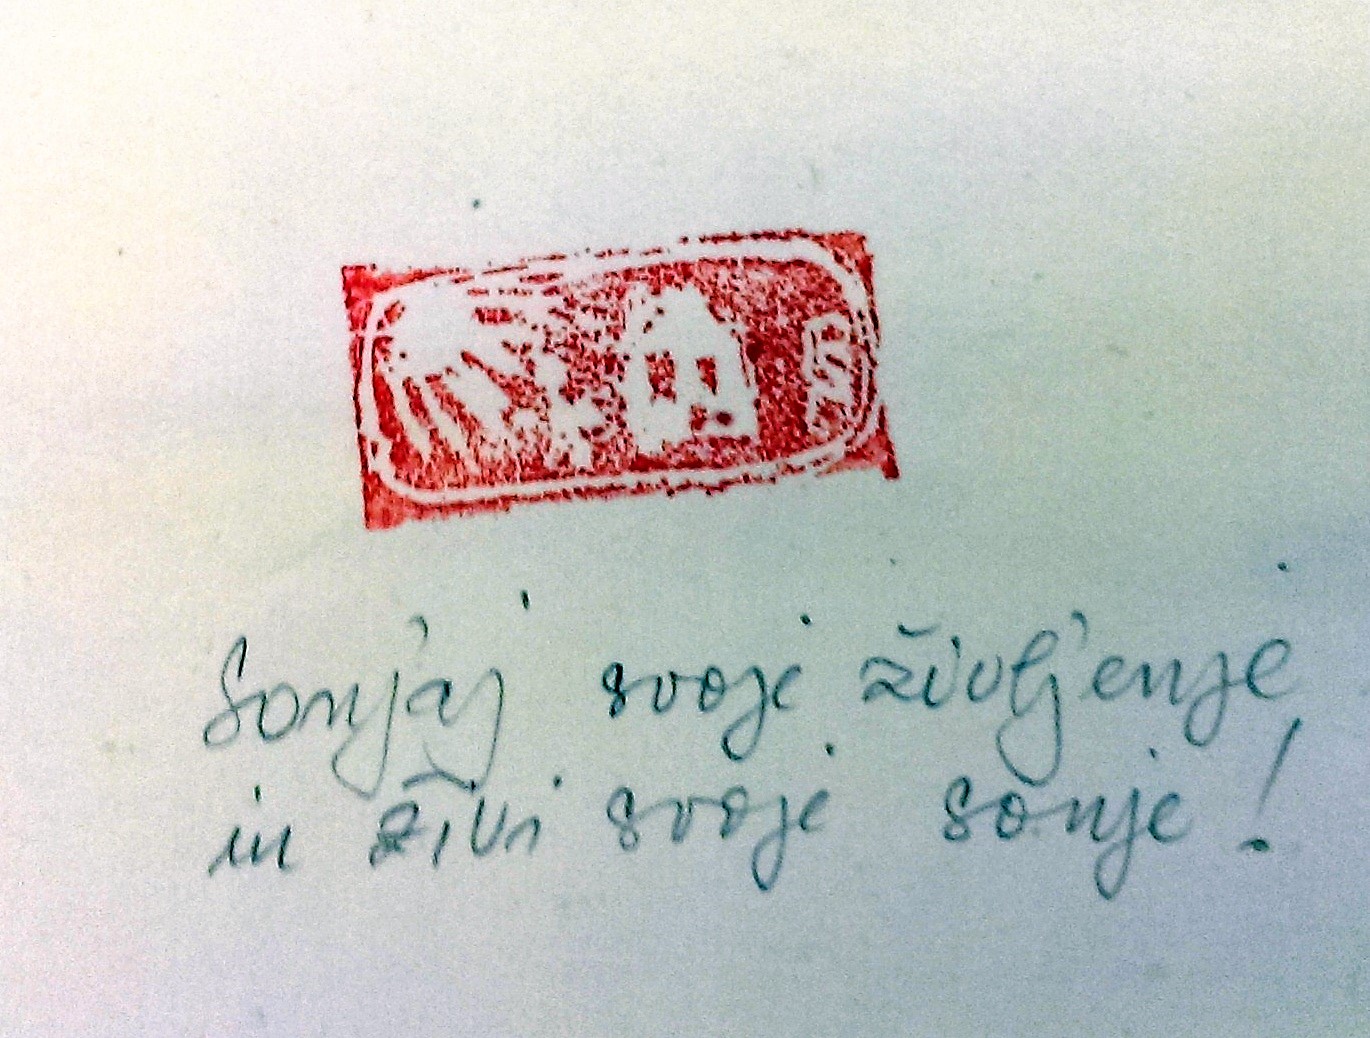 Sonjaj svoje življenje
in živi svoje sonje!